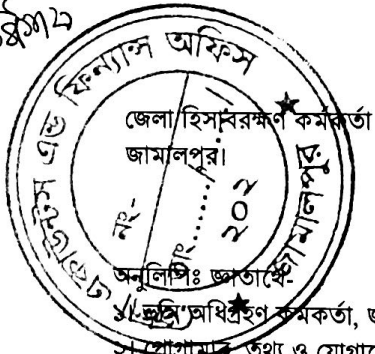 একাউন্টস এন্ড ফিন্যান্স অফিস
জামালপুর
নং-
তাং
২০২
জেলা হিসাবরক্ষণ কর্মকর্তা
জামালপুর।
অনুলিপিঃ জ্ঞাতার্থে-
১। ভূমি অধিগ্রহণ কর্মকর্তা,
২। প্রোগ্রামার, তথ্য ও